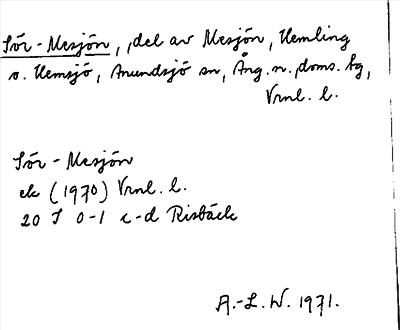 Sör-Mesjön, del av Mesjön, Hemling
o. Hemsjö, Anundsjö sn, Ång. n. doms. bg,
Vrnl. l.
Sör-Mesjön
ek (1970) Vrnl. l.
20 I 0-1 c-d Risbäck
A.-L. W. 1971.